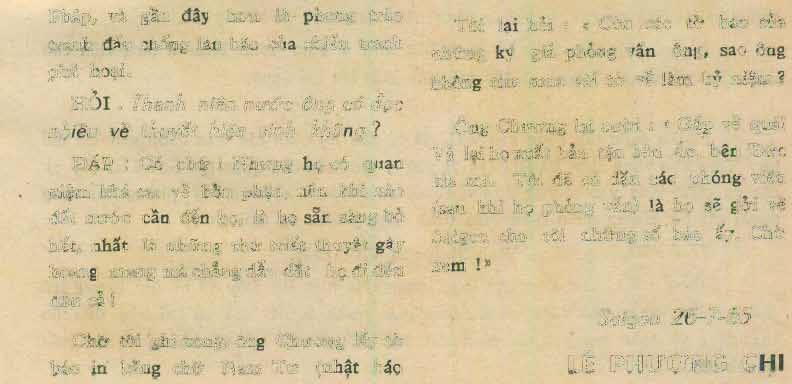 Pháp, và gần đây hơn là phong trào
tranh đấu chống tàn bạo của chiến tranh
phá hoại.
HỎI : Thanh niên nước ông có đọc
nhiều về thuyết hiện sinh không ?
ĐÁP : Có chứ ! Nhưng họ có quan
niệm khá cao về bổn phận, nên khi nào
đất nước cần đến họ, là họ sẵn sàng bỏ
hết, nhất là những thứ triết thuyết gây
hoang mang mà chẳng dẫn dắt họ đi đến
đâu cả !
Chờ tôi ghi xong, ông Chương lấy tờ
báo in bằng chữ Nam Tư (nhật báo
Tôi lại hỏi : « Còn các tờ báo của
những ký giả phỏng vấn ông, sao ông
không cho mua vài tờ về làm kỷ niệm ?
Ông Chương lại cười : « Gấp về quá !
Vả lại họ xuất bản tận bên Áo, bên Đức
kia mà. Tôi đã có dặn các phóng viên
(sau khi họ phỏng vấn) là họ sẽ gởi về
Saigon cho tôi những số báo ấy. Chờ
xem ! »
Saigon 26-7-65
LÊ PHƯƠNG CHI